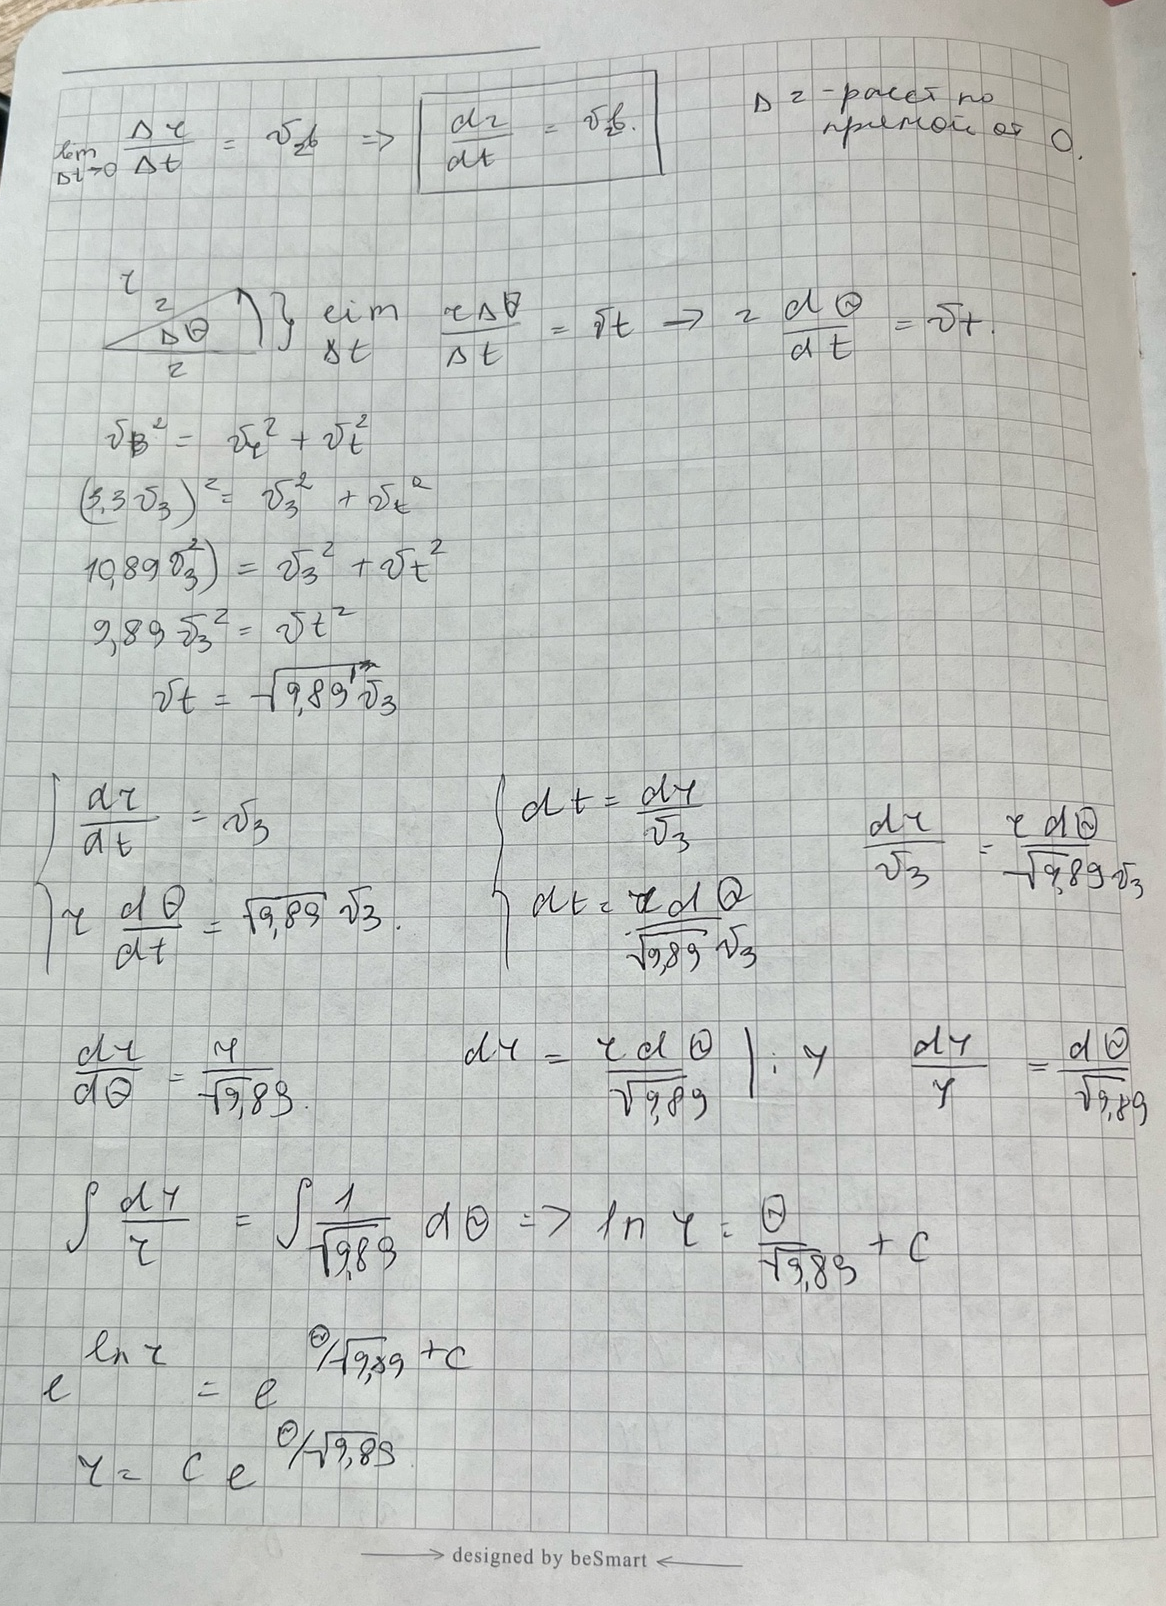 lim Δt→0 Δr/Δt = v_rb => dr/dt = v_rb.
Δr - расст по
прямой от O.
r r Δθ r } lim Δt rΔθ/Δt = vt → r dθ/dt = vt.
vB² = vr² + vt²
(3,3 v3)² = v3² + vt²
10,89 v3²) = v3² + vt²
9,89 v3² = vt²
vt = √9,89 v3
{ dr/dt = v3
r dθ/dt = √9,89 v3.
{ dt = dr/v3
dt = r dθ/√9,89 v3
dr/v3 = r dθ/√9,89 v3
dr/dθ = r/√9,89. dr = r dθ/√9,89 | : r dr/r = dθ/√9,89
∫ dr/r = ∫ 1/√9,89 dθ => ln r = θ/√9,89 + C
e^(ln r) = e^(θ/√9,89 + C)
r = C e^(θ/√9,89)
designed by beSmart